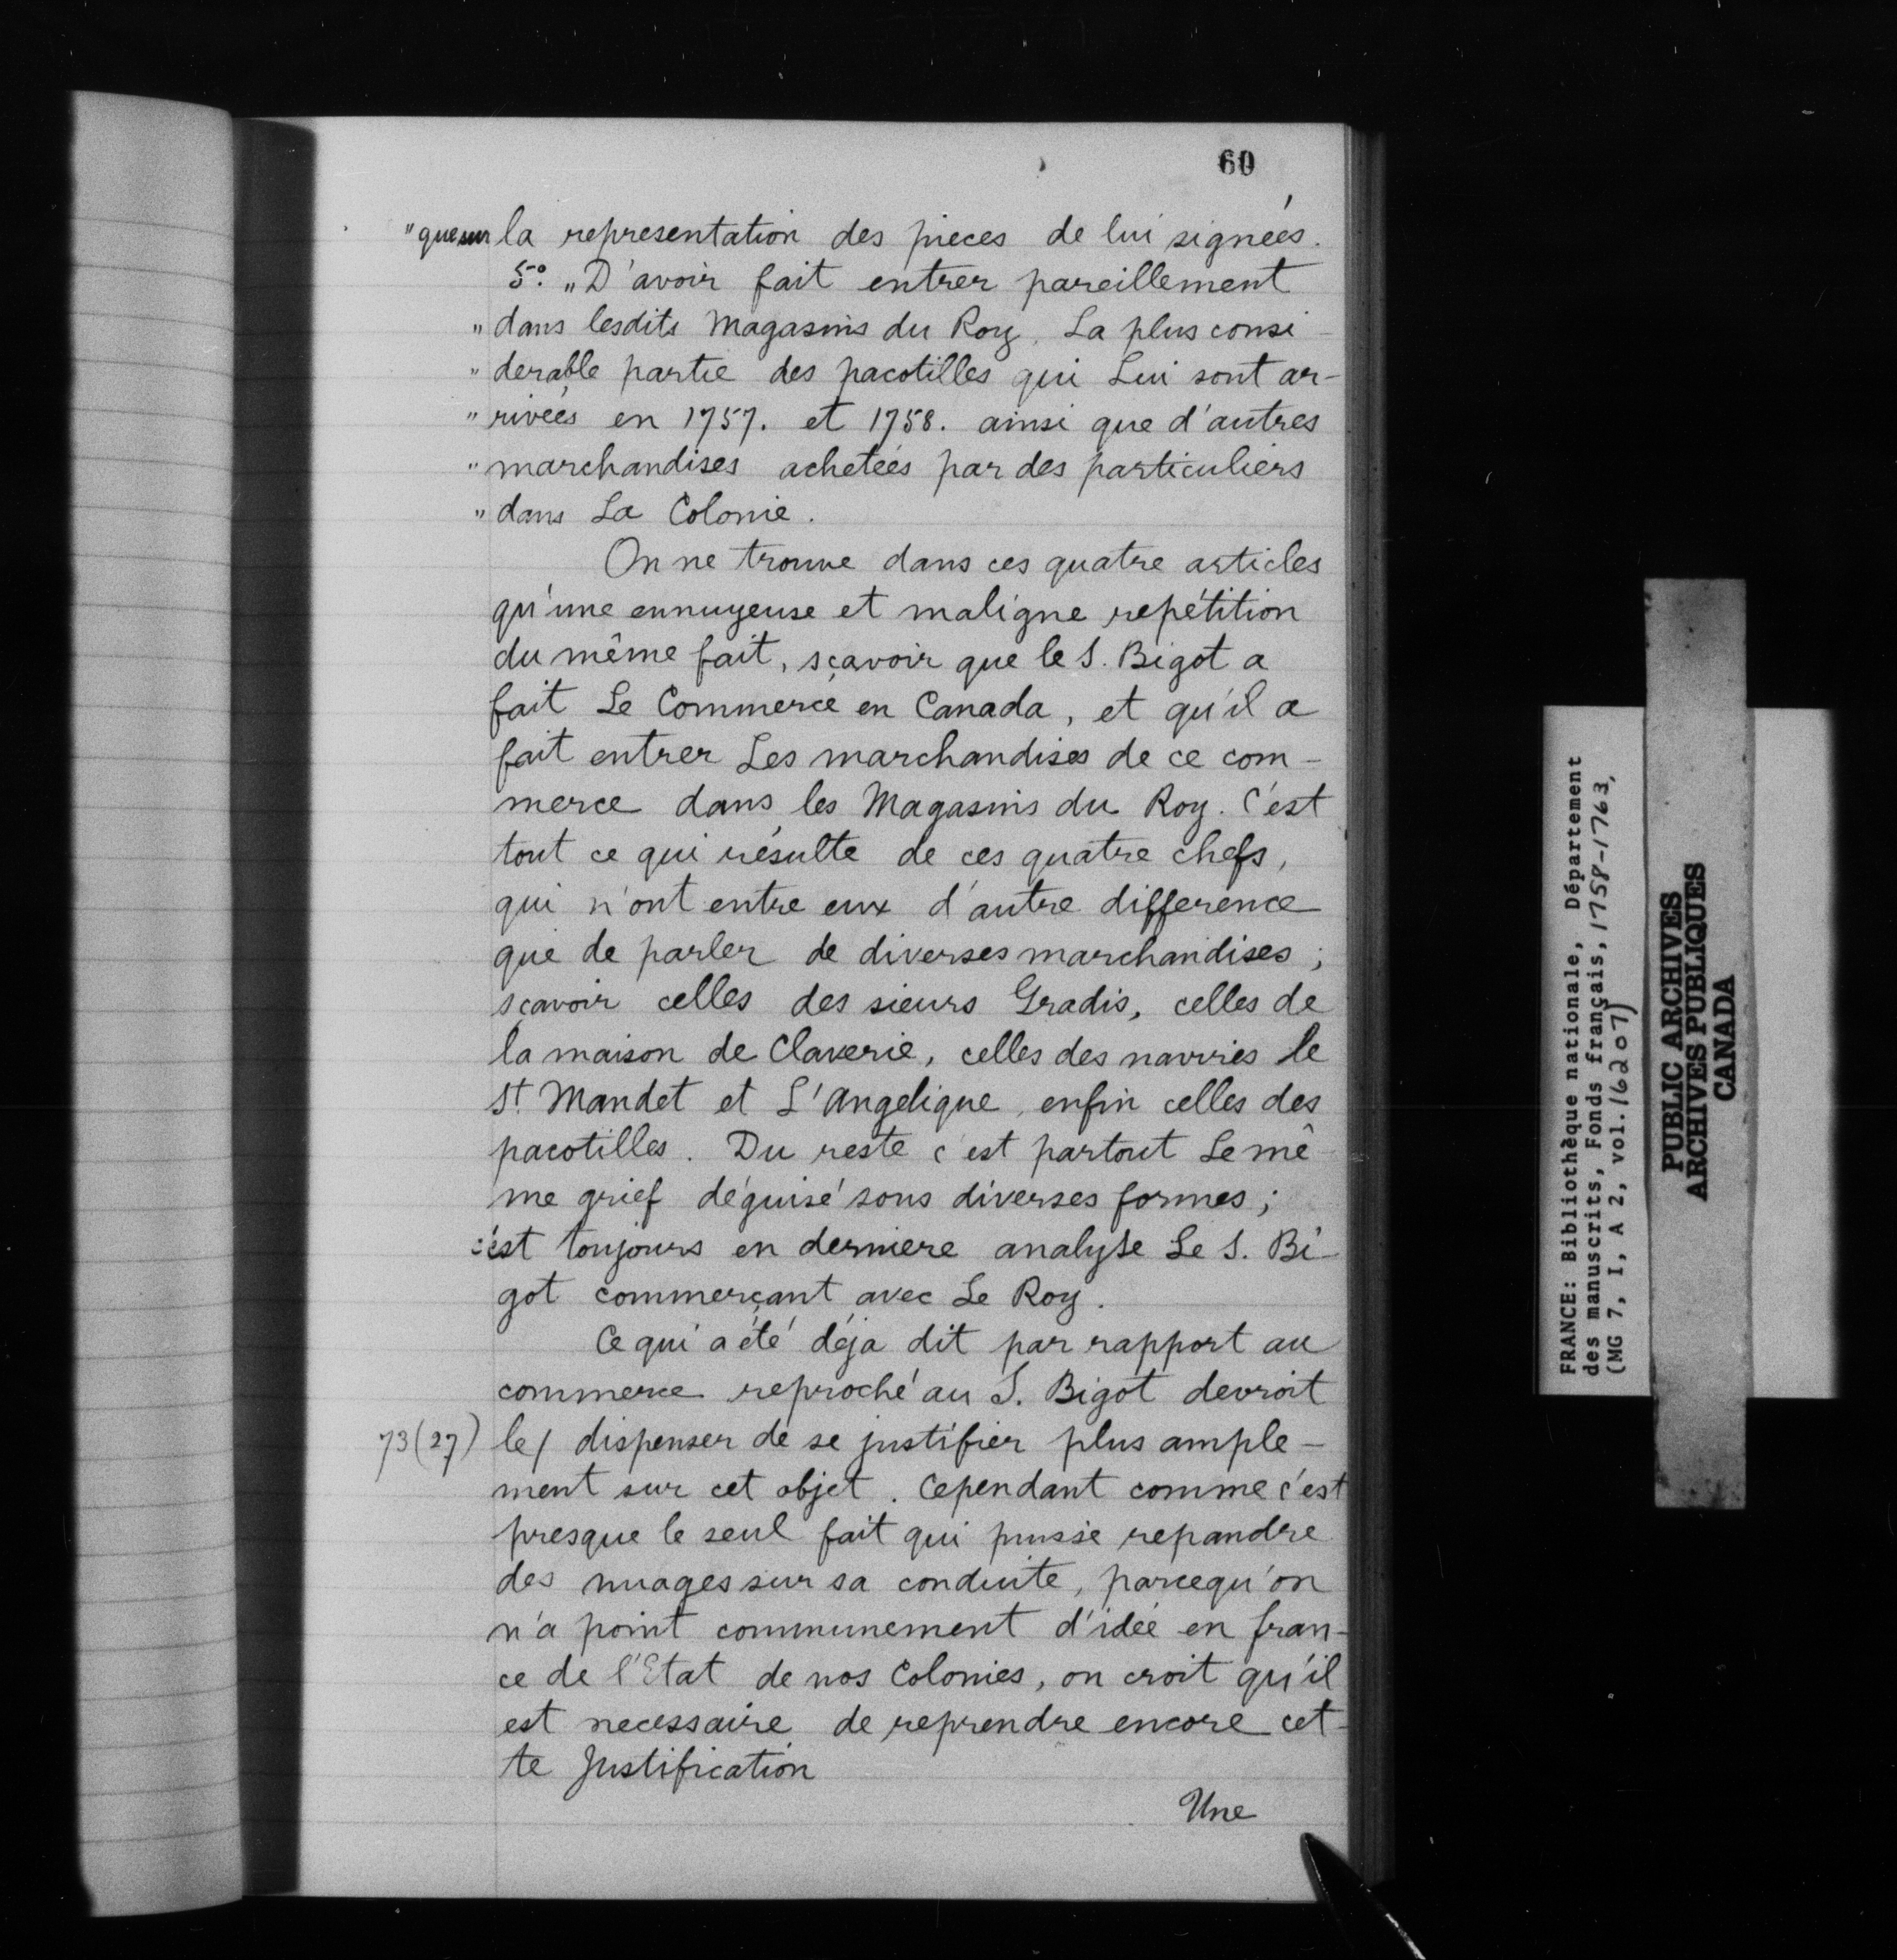 60
"que sur la representation des pieces de lui signées.
5° "D'avoir fait entrer pareillement
"dans lesdits Magasins du Roy, La plus consi-
"derable partie des pacotilles qui Lui sont ar-
"rivées en 1757. et 1758. ainsi que d'autres
"marchandises achetées par des particuliers
"dans La Colonie.
On ne trouve dans ces quatre articles
qu'une ennuyeuse et maligne repétition
du même fait, sçavoir que le S. Bigot a
fait Le Commerce en Canada, et qu'il a
fait entrer Les marchandises de ce com-
merce dans les Magasins du Roy. C'est
tout ce qui résulte de ces quatre chefs,
qui n'ont entre eux d'autre difference
que de parler de diverses marchandises;
sçavoir celles des sieurs Gradis, celles de
la maison de Claverie, celles des navires le
St. Mandet et L'Angelique, enfin celles des
pacotilles. Du reste c'est partout Le mê-
me grief déguisé sous diverses formes;
c'est toujours en derniere analyse Le S. Bi-
got commerçant avec Le Roy.
Ce qui a été déja dit par rapport au
commerce reproché au S. Bigot devroit
73(27) le/ dispenser de se justifier plus ample-
ment sur cet objet. Cependant comme c'est
presque le seul fait qui puisse repandre
des nuages sur sa conduite, parcequ'on
n'a point communement d'idée en fran-
ce de l'Etat de nos Colonies, on croit qu'il
est necessaire de reprendre encore cet-
te Justification
Une
FRANCE: Bibliothèque nationale, Département
des manuscrits, Fonds français, 1758-1763,
(MG 7, I, A 2, vol. 16207)
PUBLIC ARCHIVES
ARCHIVES PUBLIQUES
CANADA